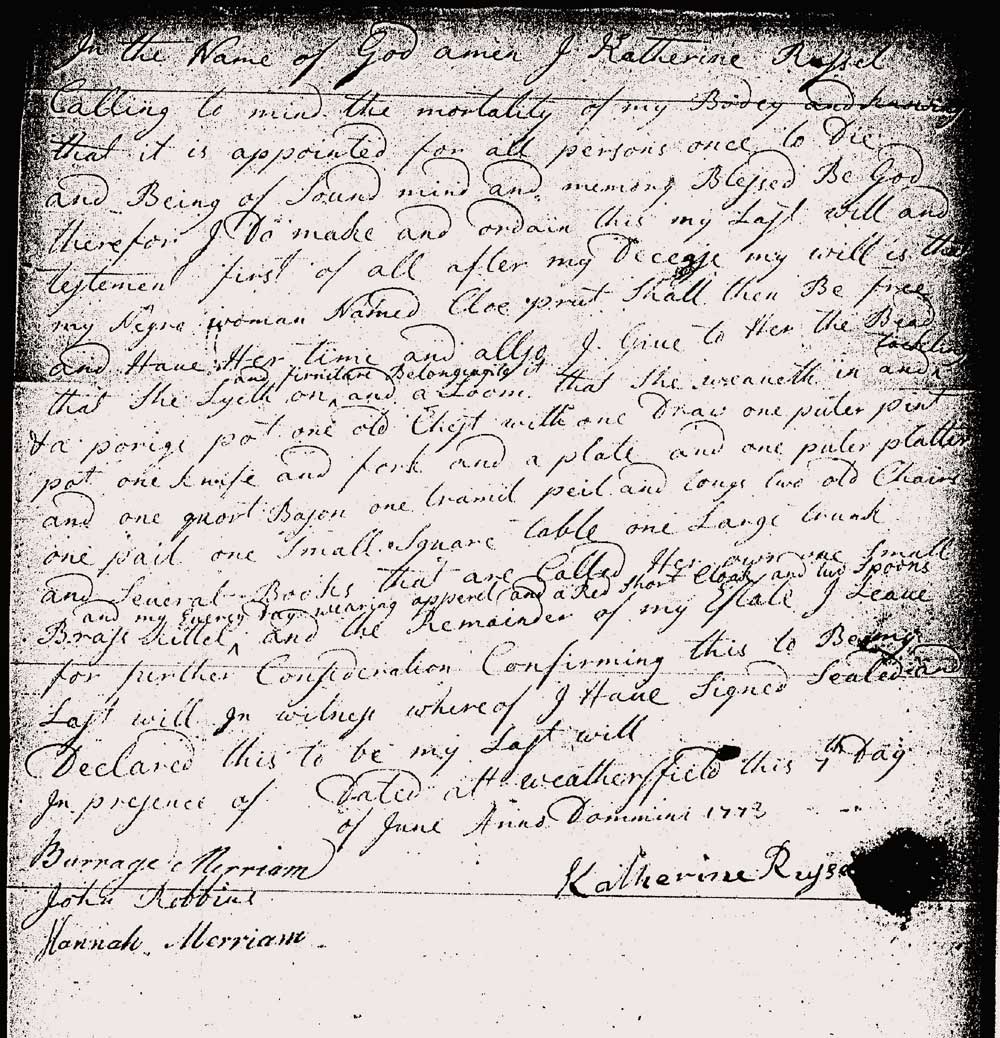 In the Name of God amen I Katherine Russel
Calling to mind the mortality of my Bodey and knowing
that it is appointed for all persons once to Die
and Being of Sound mind and memory Blessed Be God
therefor I Do make and ordain this my Last will and
testement first of all after my Decease my will is that
my Negro woman Named Cloe prut Shall then Be free
and Have Her time and allso I Give to Her the Bead
and firniture Belonging to it tackling
that She Lyeth on and a Loom that She weaveth in and
& a porige pot one old Chest with one Draw one puter pint
pot one knife and fork and a plate and one puter platter
and one quort Bason one tramil peil and tongs two old Chairs
one pail one Small Square table one Large trunk
and Several Books that are Called Her own one Small
and my Every day wearing apperel and a Red Short Cloak and two Spoons
Brass Kittel and the Remainder of my Estate I Leave
for further Consideration Confirming this to Be my
Last will In witness whereof I Have Signed Sealed and
Declared this to be my Last will
In presence of Dated att weathersfield this 7th Day
of June Anno Dommini 1773
Burrage Merriam
Katherine Russel
John Robbins
Hannah Merriam